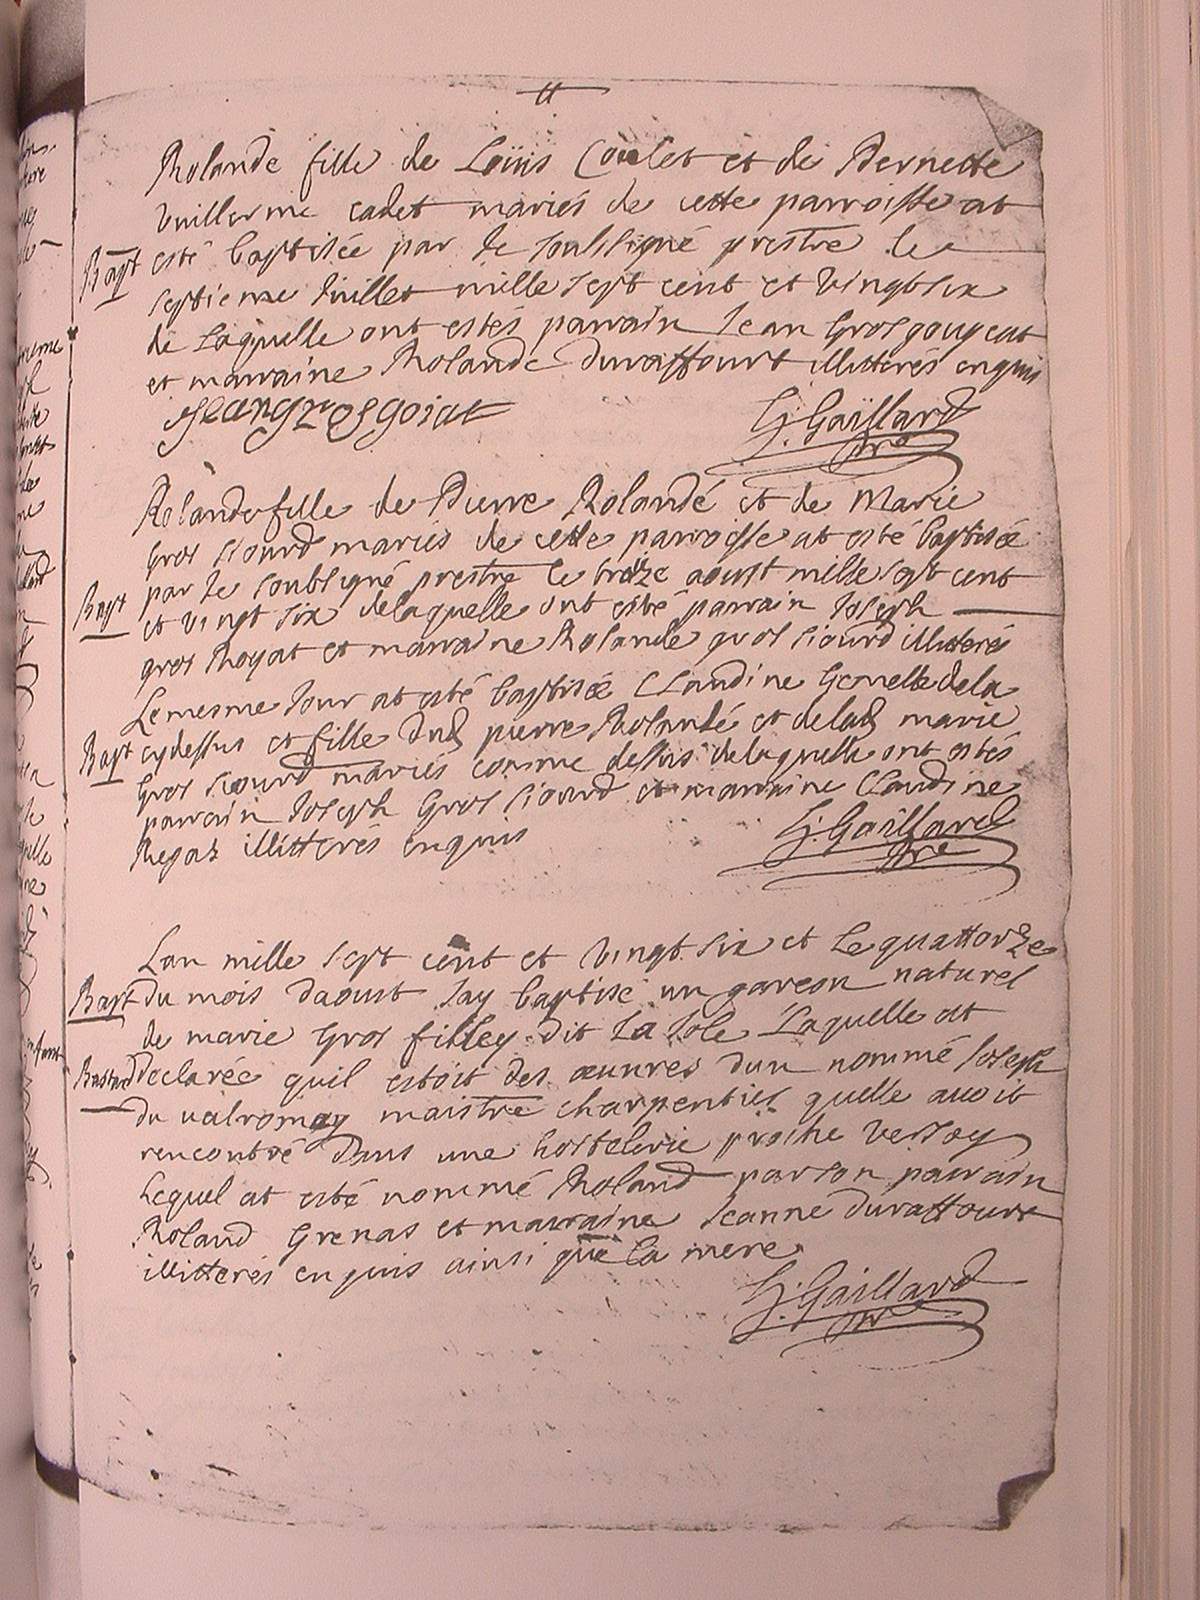 11
Rolande fille de Loüis Coulet et de Pernette
Vuillerme cadet mariés de cette parroisse at
Bapt esté baptisée par le soubsigné prestre le
septieme Juillet mille sept cent et vingt six
de laquelle ont estés parrain Jean Grosgougeat
et marraine Rolande Duraffourt illitterés enquis
Jean grosgojat G. Gaïllard
pre
Rolande fille de Pierre Rolandé et de Marie
Gros Siourd mariés de cette parroisse at esté baptisée
par le soubsigné prestre le treïze aoust mille sept cent
Bapt et vingt six delaquelle ont esté parrain Joseph
gros Royat et marraine Rolande gros Siourd illitterés
Le mesme Jour at esté baptisée Claudine Gemelle de la
Bapt cy dessus et fille dud pierre Rolandé et de lad marie
Gros Siourd mariés comme dessus delaquelle ont estés
parrain Joseph Gros Siourd et marraine Claudine
Regaz illitterés enquis G. Gaillard
pre
Lan mille sept cent et vingt six et le quattorze
Bapt du mois daoust Jay baptisé un garcon naturel
de marie Gros filley dit la Jole Laquelle at
Bastard declarée quil estoit des œuvres dun nommé Joseph
du valromey maistre charpentier quelle avoit
rencontré dans une hostelerie proche Versoy
Lequel at esté nommé Roland par son parrain
Roland Grenas et marraine Jeanne Duraffourt
illitterés enquis ainsi que la mere
G. Gaillard
pre